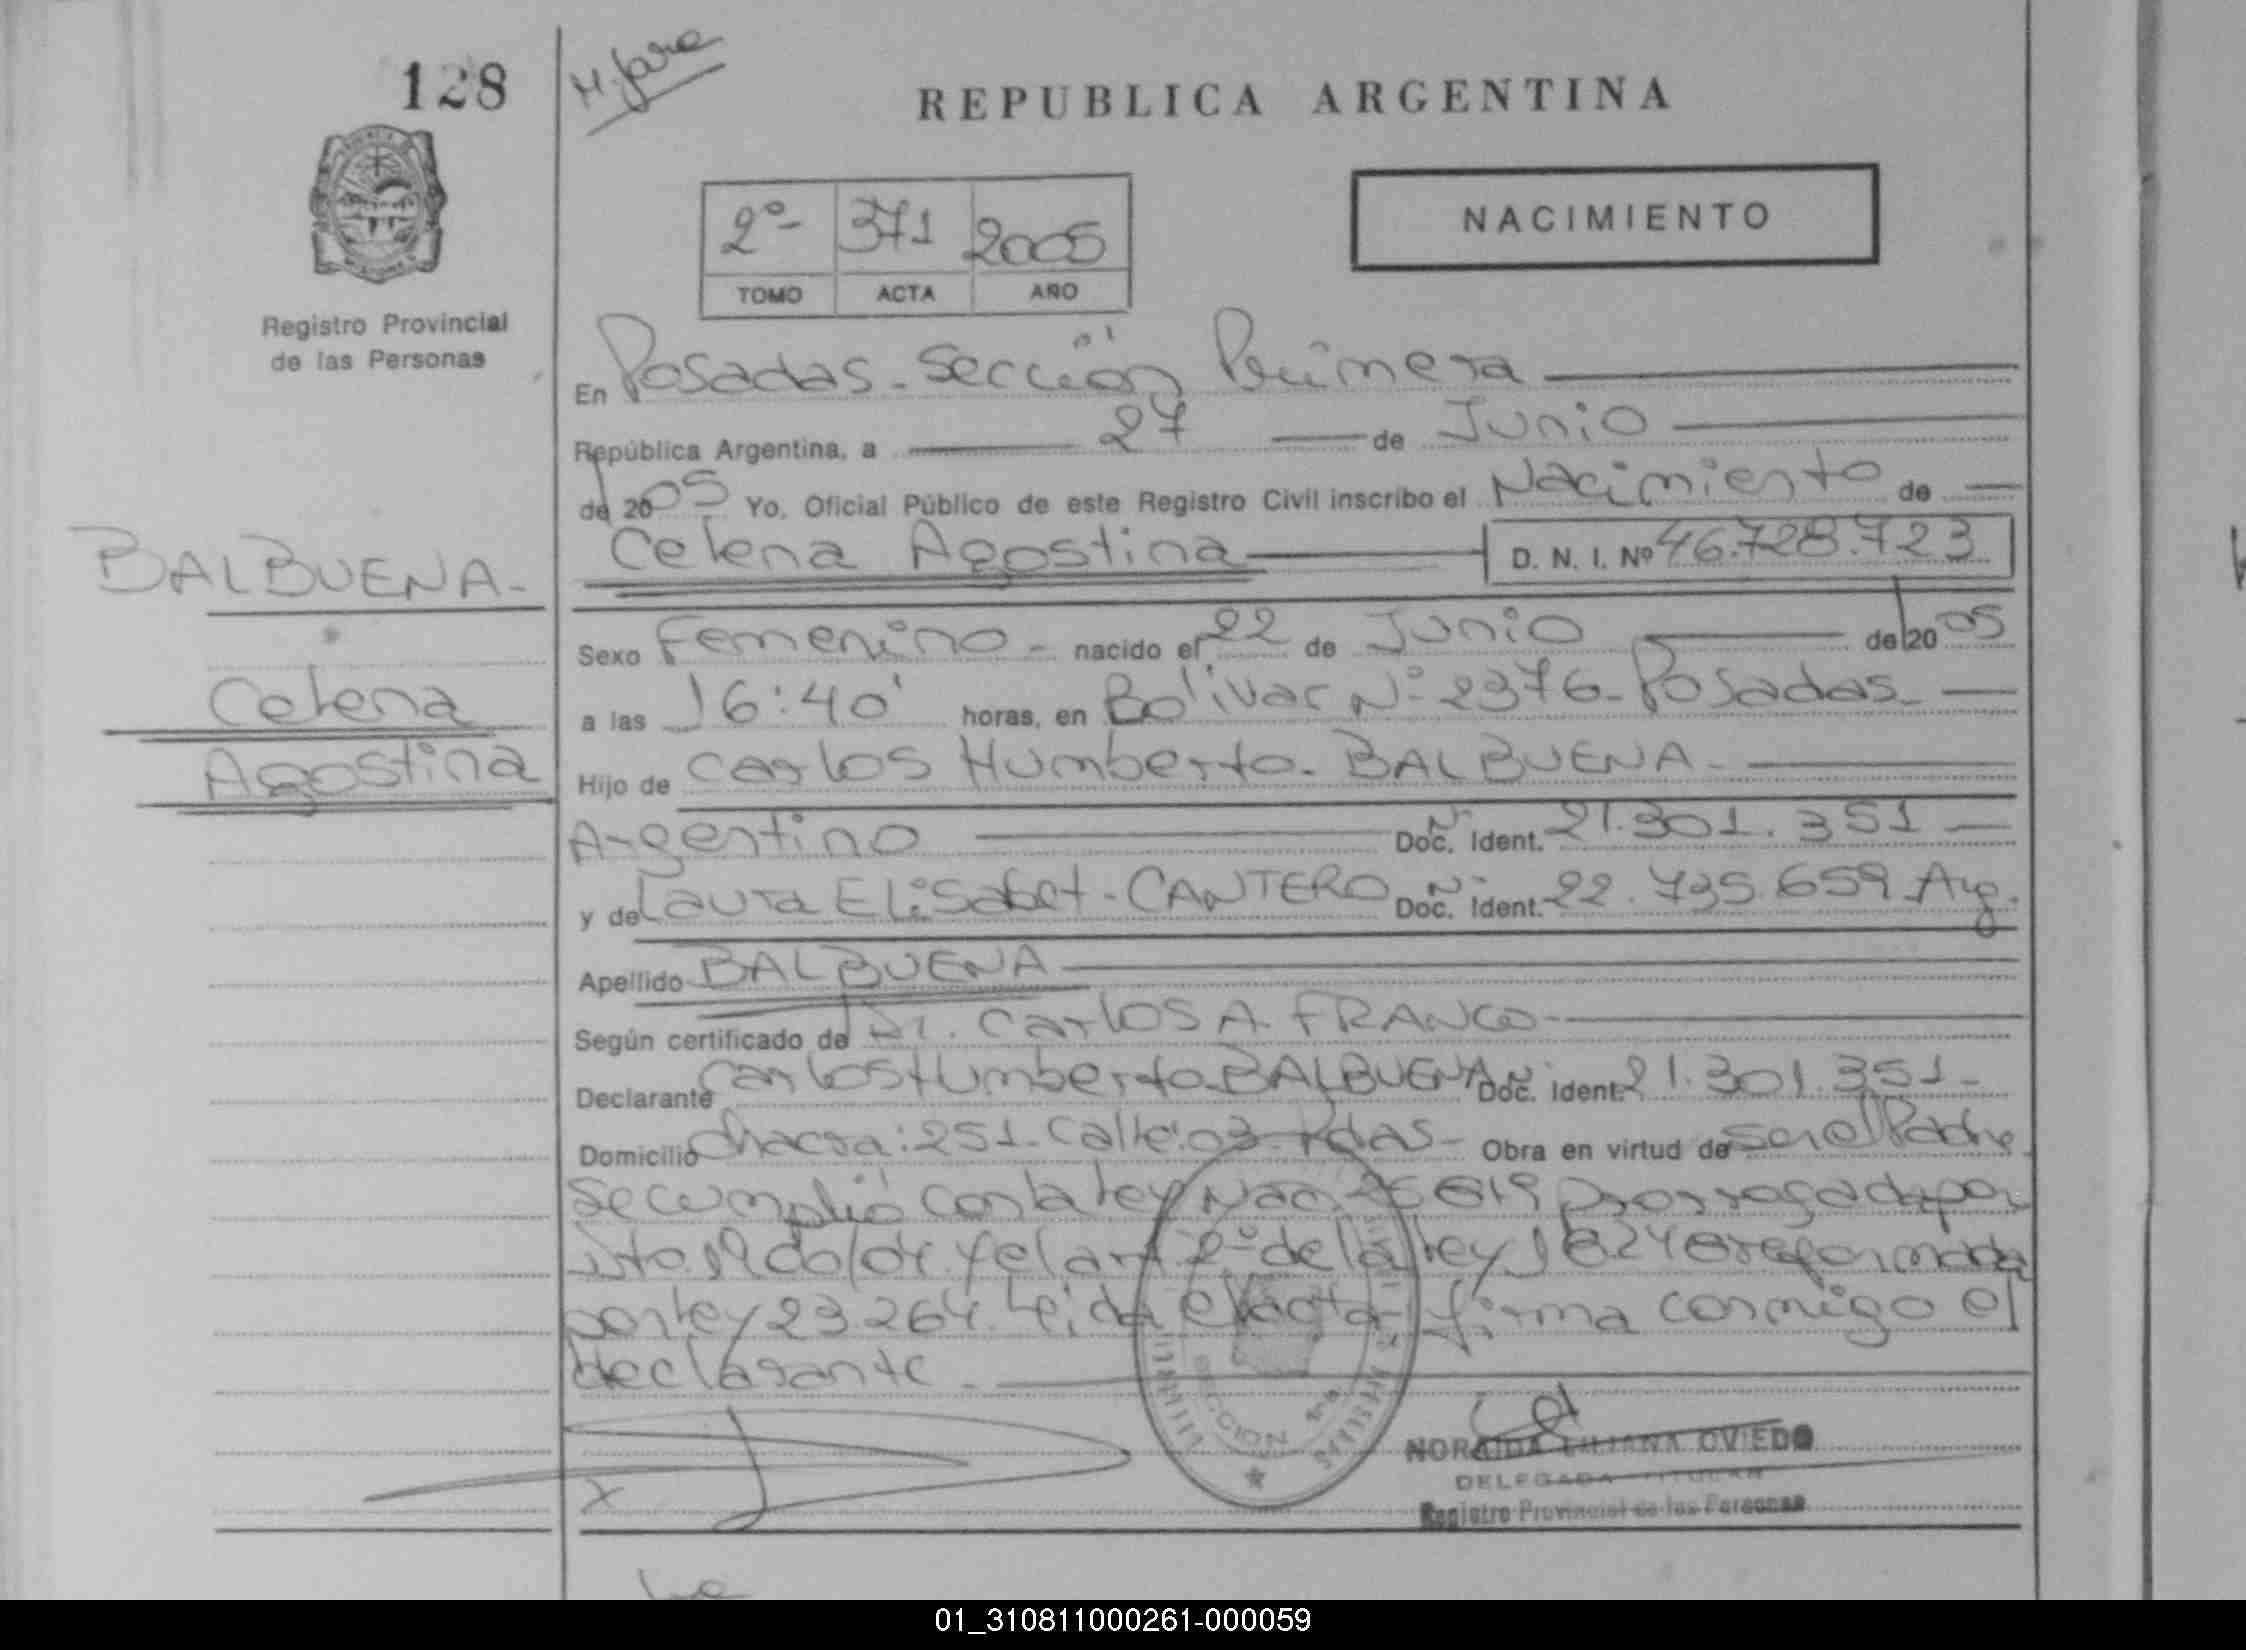 128
H. Jara
REPUBLICA ARGENTINA
2º- 371 2005
TOMO ACTA AÑO
NACIMIENTO
Registro Provincial
de las Personas
En Posadas - Sección Primera
República Argentina, a 27 de Junio
de 2005 Yo, Oficial Público de este Registro Civil inscribo el Nacimiento de
Celena Agostina D. N. I. Nº 46.728.723
BALBUENA-
Celena
Agostina
Sexo Femenino - nacido el 22 de Junio de 2005
a las 16:40' horas, en Bolívar Nº 2376 - Posadas -
Hijo de Carlos Humberto - BALBUENA -
Argentino Doc. Ident. Nº 21.301.351
y de Laura Elisabet - CANTERO Doc. Ident. Nº 22.735.659 Arg.
Apellido BALBUENA
Según certificado de Dr. Carlos A. FRANCO
Declarante Carlos Humberto BALBUENA Doc. Ident. Nº 21.301.351-
Domicilio Chacra: 251 - Calle: 03 - Pdas - Obra en virtud de Ser el Padre
Se cumplió con la ley Nac. prorrogada por
y el art 2º de la ley 18248 reformada
por ley 23264. Leída el acta, firma conmigo el
declarante.
SECCION 1ra
NORAIDA LILIANA OVIEDO
DELEGADA TITULAR
Registro Provincial de las Personas
01_310811000261-000059